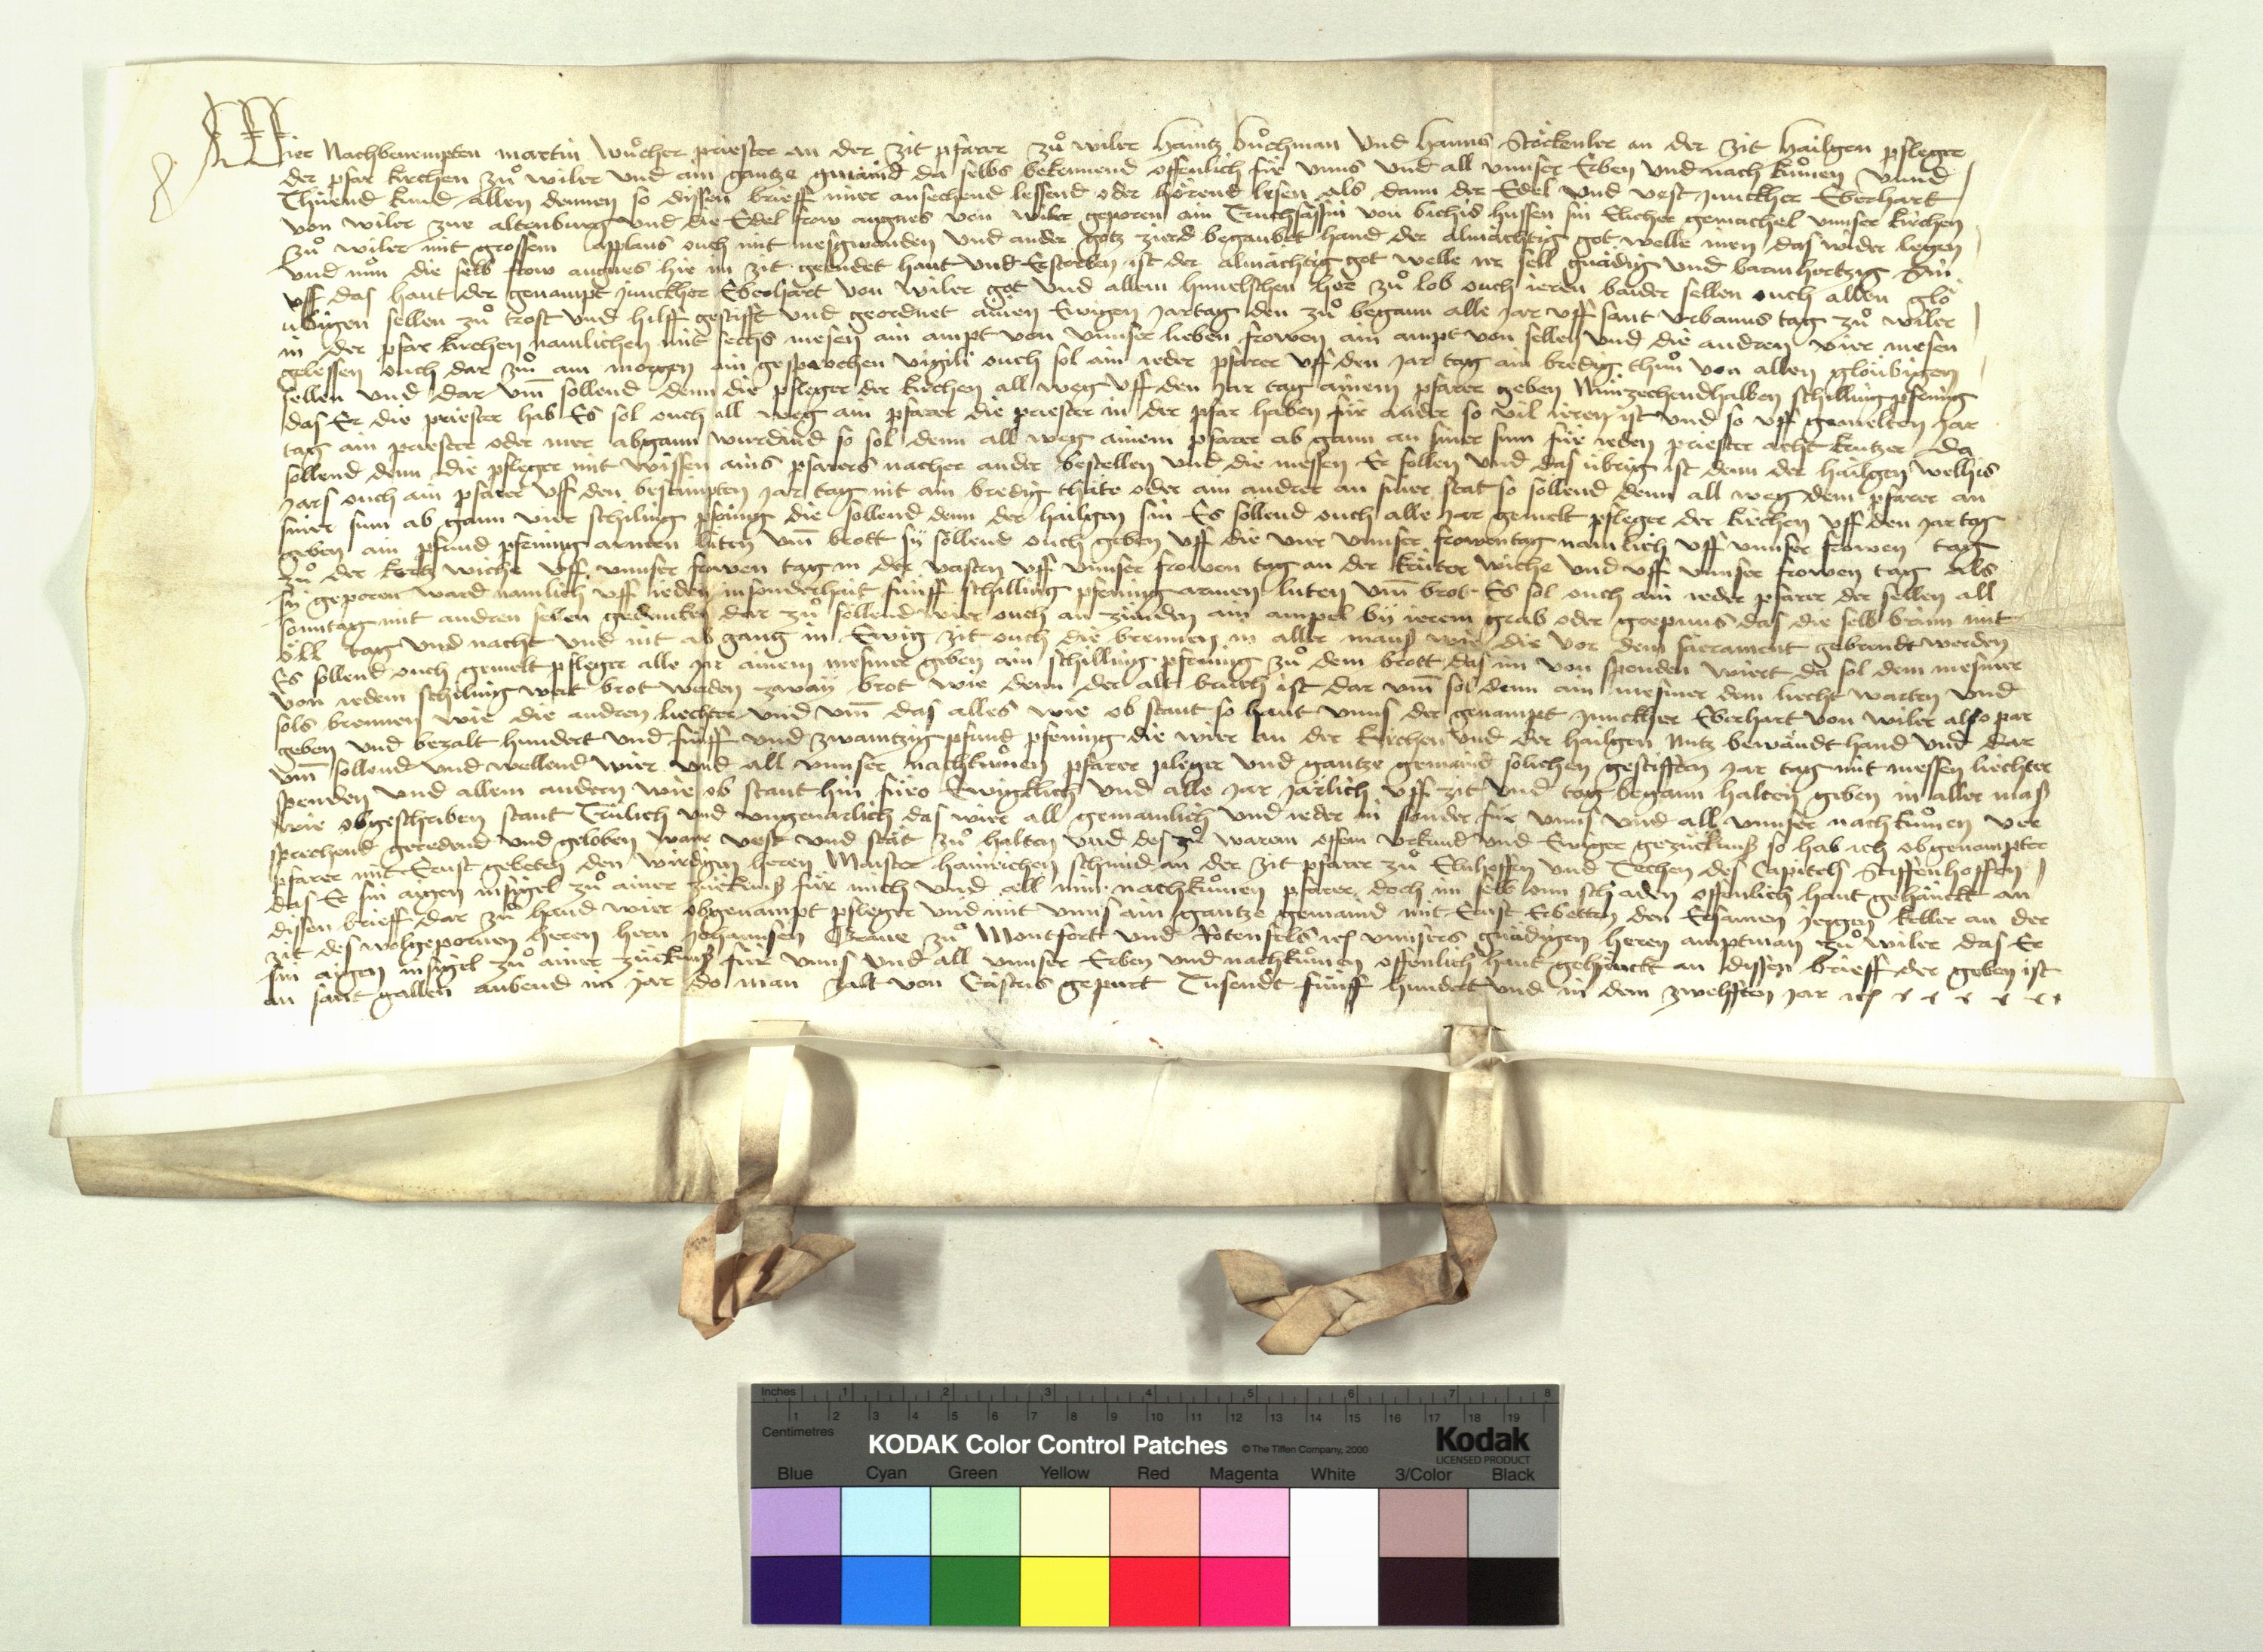 Wier Nachbenempten martin wuͦcher priester an der zit pfarer zuͦ wiler haintz buͦchman Und hanns Stöckenler an der zit hailgen pfleger
der pfar kirchen zuͦ wiler und ain gantze gmaind da selbs bekennend offenlich für unns und all unnser Erben und nach kuͦmen unnd
Thüend kund allen dennen so dissen brieff imer ansechend lessend oder hörend lesen als dann der Edel und vest junckher Eberhart
von wiler zue altenburg und die Edel frow angnes von wiler geporen ain Truchsässin von bichis hussen sin Elicher gemachel unnser kirchen
zuͦ wiler mit grossem applaus ouch mit mesgwanden und ander gotz zierd begaubet hand der almächtig got welle inen das wider legen
und nuͦn die selb frow angnes hie im zit geendet haut und Erstorben ist der almächtig got welle ir sell gnädig und barmhertzig sin
uff das haut der genampt junckher Eberhart von wiler got und allem himelschen hör zuͦ lob ouch ieren baider sellen ouch allen glö
ubigen sellen zuͦ trost und hilff gestifft und geordnet ainen Ewigen jartag den zuͦ begann alle jar uff sant urbanus tag zuͦ wiler
in der pfar kirchen namlichen mit sechs mesen ain ampt von unnser lieben frowen ain ampt von sellen und die andren vier mesen
gelessen ouch dar zuͦ am morgen ain gesprochen vigili ouch sol ain ieder pfarer uff den jar tag ain bredig thuͦn von allen glöubigen
sellen und dar um̅ sollend denn die pfleger der kirchen all weg uff den jar tag ainem pfarer geben Nünzechendhalben schilling pfening
das Er die priester hab Es sol ouch all weg ain pfarer die priester in der pfar haben für ander so vil ieren ist und so uff gemelten jar
tag ain priester oder mer abgann wurdind so sol denn all weg ainem pfarer ab gann an siner sum für ieden priester acht krützer da
sollend denn die pfleger mit wissen ains pfarers nacher ander bestellen und die messen Er sollen und das übrig ist denn der hailgen wellis
jars ouch ain pfarer uff den bestimpten jar tag nit ain bredig thäte oder ain andrer an siner stat so söllend denn all weg dem pfarer an
siner sum ab gann vier schiling pfening die söllend denn der hailgen sin Es söllend ouch alle jar gemelt pfleger der kirchen uff den jar tag
geben ain pfund pfening armen lüten um̅ brott sÿ söllend ouch geben uff die vier unnser frowentag namlich uff unnser frowen tag
zuͦ der kertz wiche uff unnser frowen tag in der vasten uff unnser frowen tag an der krüter wiche und uff unnser frowen tag als
sÿ geporen ward namlich uff ieden insonderhait fünff schilling pfening armen lüten um̅ brot Es sol ouch ain ieder pfarer der sellen all
sonntag mit andren sellen gedencken dar zuͦ söllend wier ouch an zünden ain ampel bÿ ierem grab oder grepnus das die selb brinn mit
öll tag und nacht und nit ab gang in Ewig zit ouch die brennen in aller maus wie die vor dem sacrament gebrendt werden
Es söllend ouch gemelt pfleger alle jar ainem mesmer geben ain schilling pfening zuͦ dem brott das im von spenden wiert da sol dem mesmer
von iedem schiling wert brot werden zwaÿ brot wie denn der alt bruch ist dar um̅ sol denn ain mesmer dem liecht warten und
sols brennen wie die andren liechter und um̅ das alles wie ob staut so haut unns der genampt junckher Eberhart von wiler also par
geben und bezalt hundert und fünff und zwaintzig pfund pfening die wier an der kirchen und der hailgen nutz bewändt hand und dar
um̅ söllend und wellend wier und all unnser nachkuͦmen pfarer pleger und gantze gemaind solichen gestifften jar tag mit messen liechter
spenden und allem andern wie ob staut hin füro Ewigklich und alle jar järlich uff zit und tag begann halten geben in aller mas
wie obgeschriben staut Trülich und ungevarlich das wier all gemainlich und ieder in sonder für unns und all unnser nachkuͦmen ver
sprechend geredend und geloben waur vest und stät zuͦ halten und des zuͦ warem offem urkund und Ewiger gezückniss so hab ich obgenampter
pfarer mit Ernst gebeten den wirdigen heren Maister hainrichen schmid an der zit pfarer zuͦ Elnhoffen und Techen des Capitels Stiffenhoffen
das Er sin aigen insigel zuͦ ainer zückniss für mich und all min nachkuͦmen pfarer doch im selb onn schaden offenlich haut gehänckt an
dissen brieff dar zuͦ hand wier obgenampt pfleger und mit unns ain gantze gemaind mit Ernst Erbetten den Ersamen jergen keller an der
zit des wolgepornen heren hern johannsen Grave zuͦ Montfort und Rotenfels etc unnsers gnädigen heren amptman zuͦ wiler das Er
sin aigen insigel zuͦ ainer zückniss für unns und all unnser Erben und nachkuͦmen offenlich haut gehenckt an dissen brieff der geben ist
an sant gallen aubend im jar do man zalt von Cristus gepurt Tusendt fünff hundert und in dem zwelfften jar etc
Inches 1 2 3 4 5 6 7 8
1 2 3 4 5 6 7 8 9 10 11 12 13 14 15 16 17 18 19
Centimetres
KODAK Color Control Patches © The Tiffen Company, 2000 Kodak
LICENSED PRODUCT
Blue Cyan Green Yellow Red Magenta White 3/Color Black